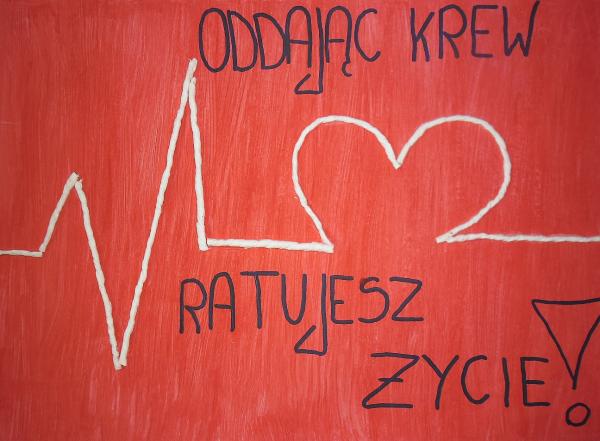 ODDAJĄC KREW
RATUJESZ
ŻYCIE!